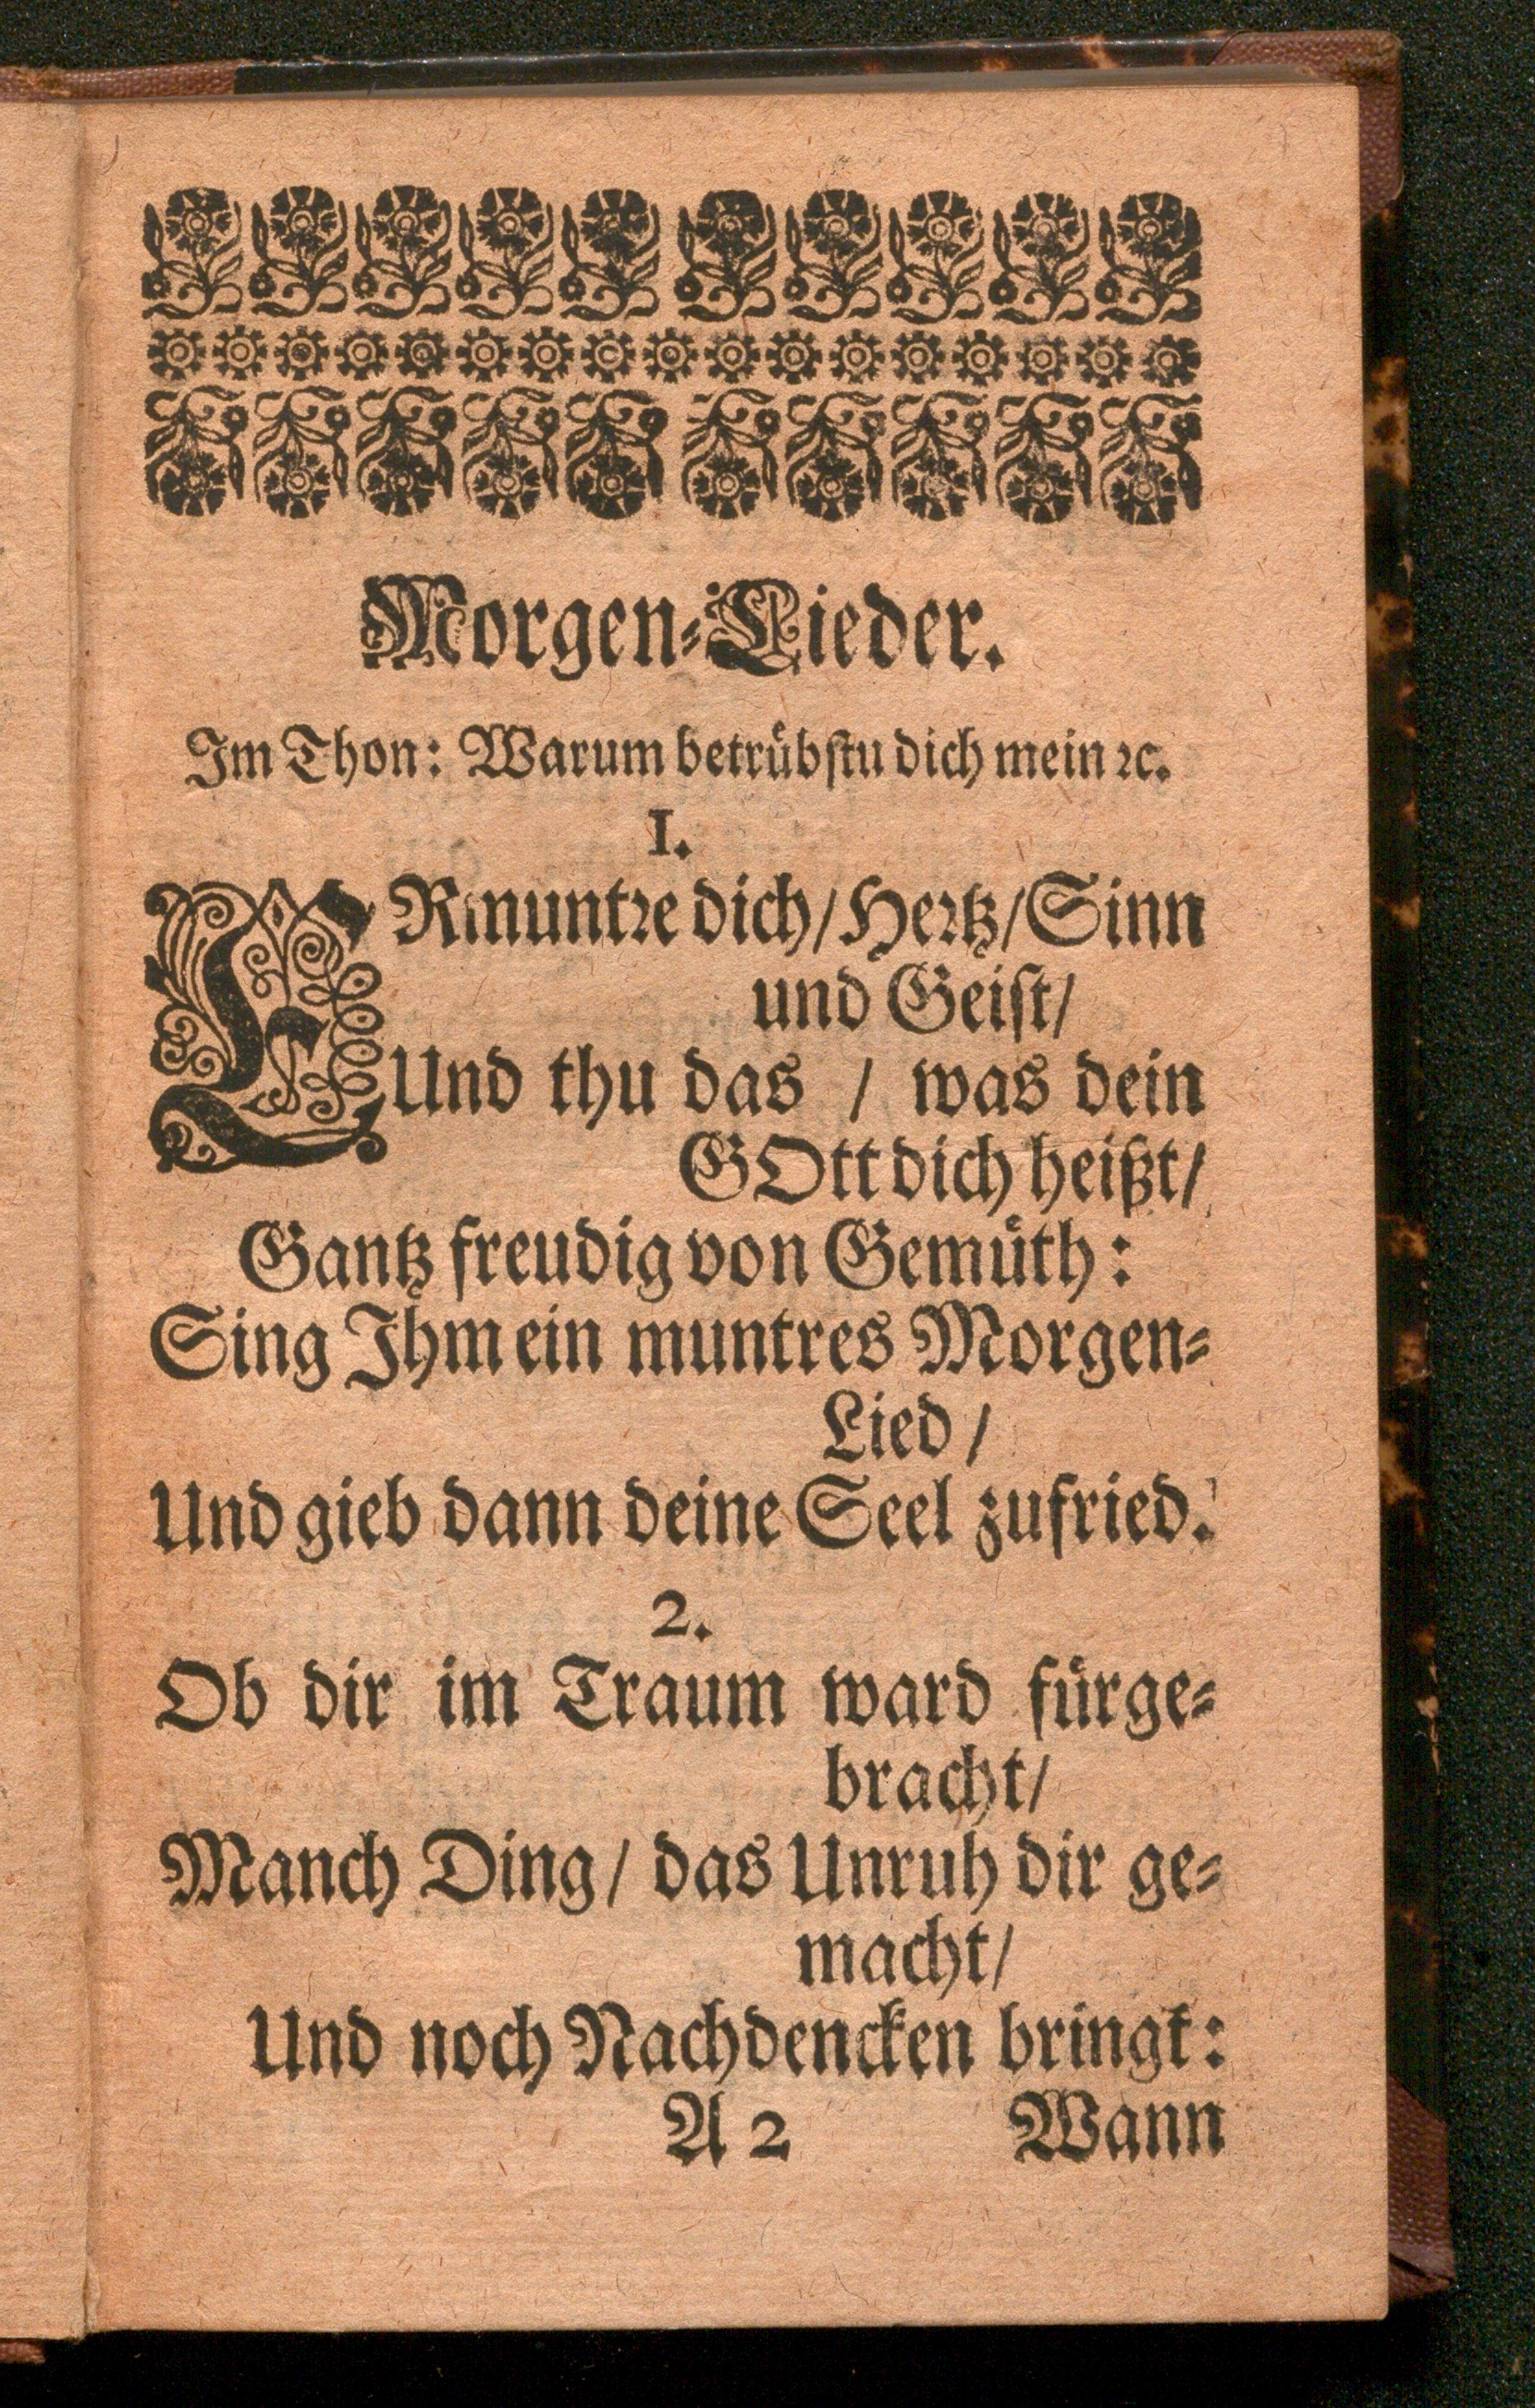 Morgen-Lieder.
Im Thon: Warum betrübstu dich mein ꝛc.
1.
ERmuntre dich/ Hertz/ Sinn
und Geist/
Und thu das / was dein
GOtt dich heißt/
Gantz freudig von Gemüth:
Sing Ihm ein muntres Morgen-
Lied /
Und gieb dann deine Seel zufried.
2.
Ob dir im Traum ward fürge-
bracht/
Manch Ding/ das Unruh dir ge-
macht/
Und noch Nachdencken bringt:
A 2 Wann